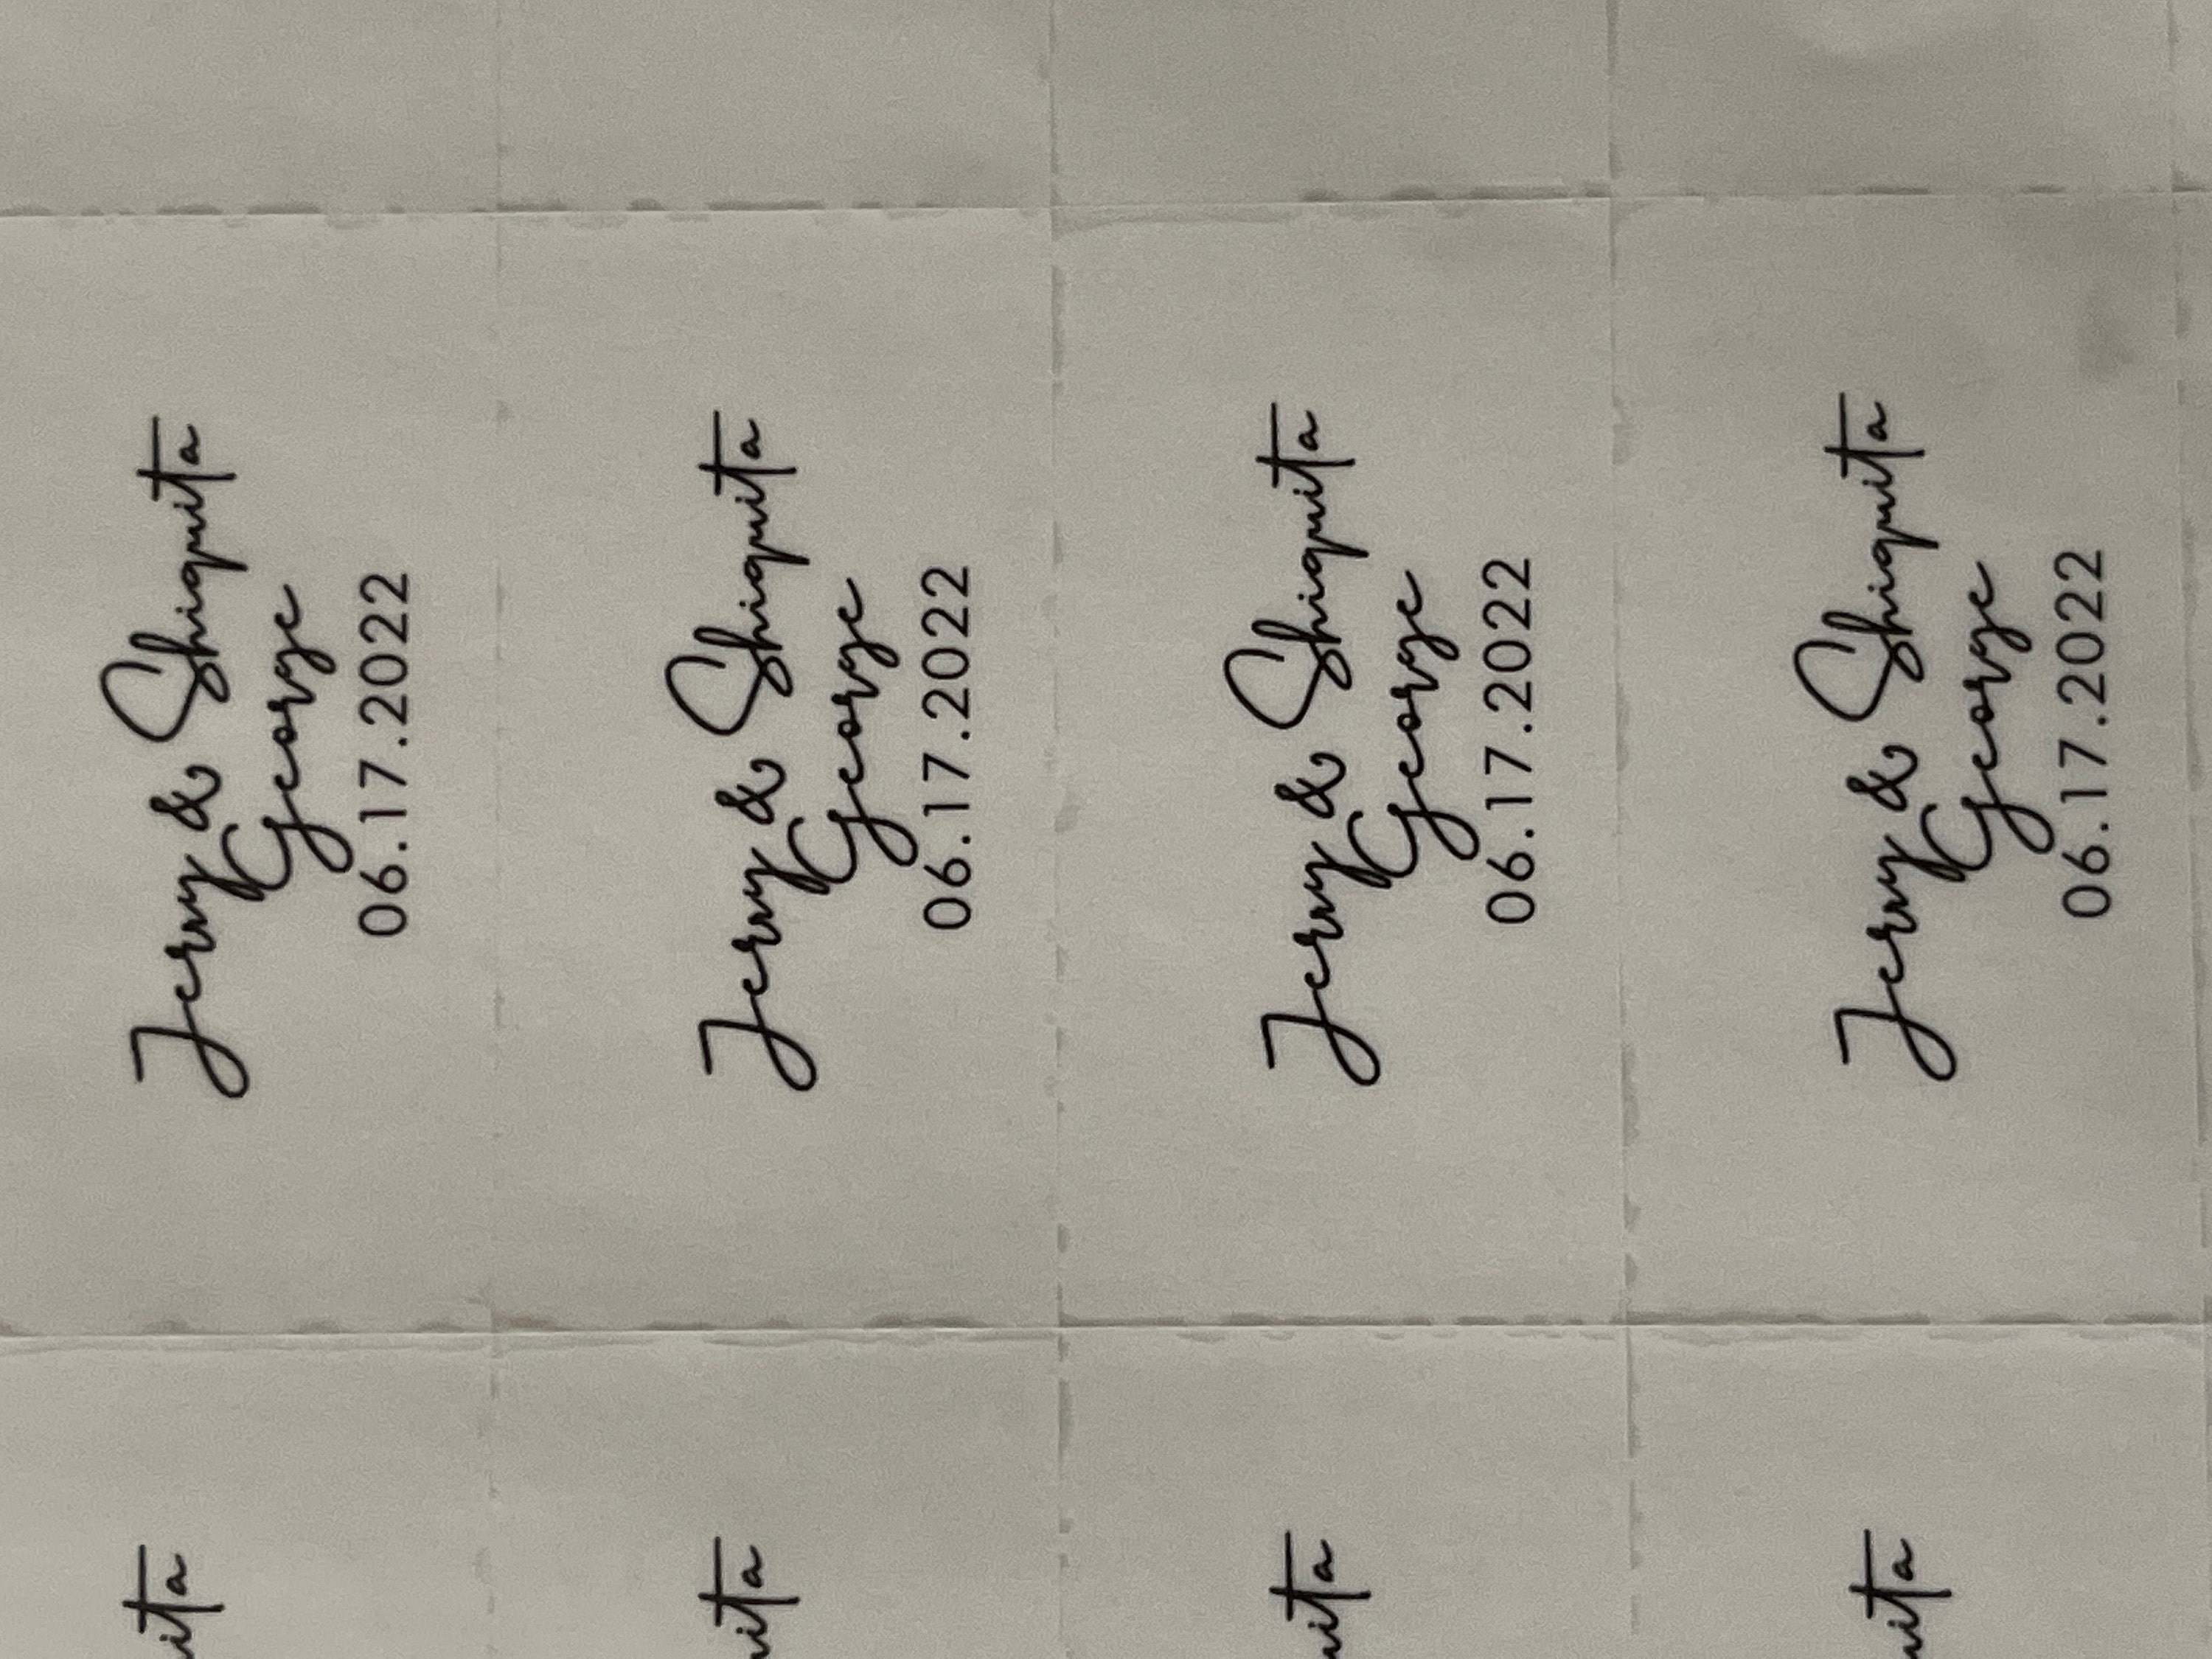 Jerry & Shiquita
George
06.17.2022
Jerry & Shiquita
George
06.17.2022
Jerry & Shiquita
George
06.17.2022
Jerry & Shiquita
George
06.17.2022
uita
uita
uita
uita